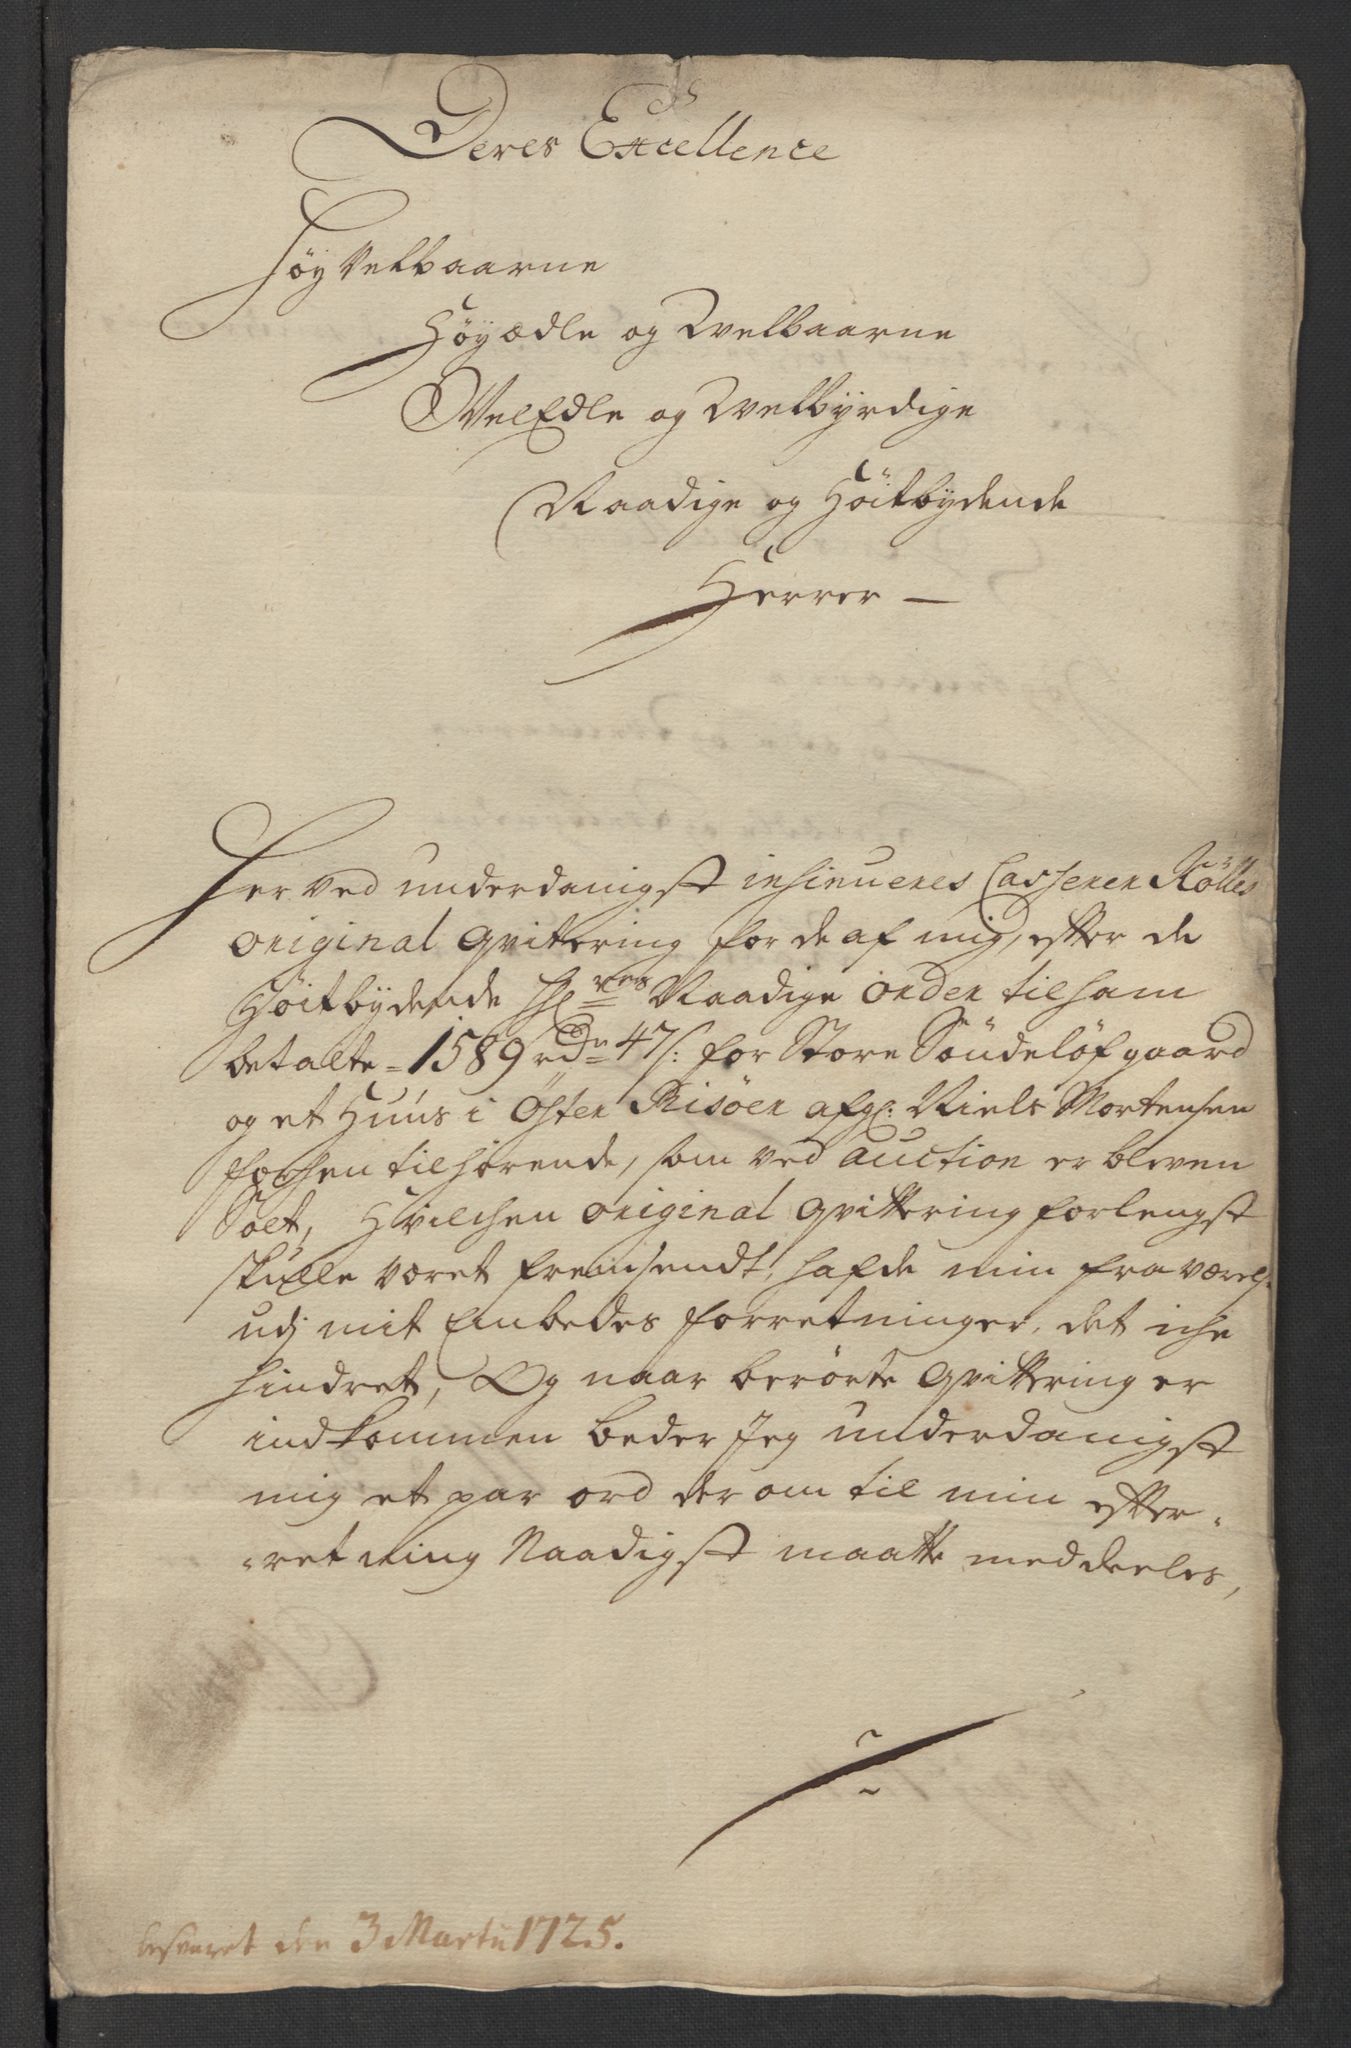 Deres Excellence
HöyVelbaarne
Höyædle og Welbaarne
VelEdle og Welbyrdige
Naadige og Höitbydende
Herrer —
Her ved underdanigst insinueres Casserer Rölles
original qvittering for de af mig, effter de
Höitbydende Naadige Order til ham
betalte = 1589 rdr 47 s: for Store Söndelöf gaard
og et Huus i Öster Risöer afg: Niels Mortensen
tilhörende, som ved auction er bleven
Solt, Hvilchen original qvittering forlengst
skulle været fremsendt, hafde min fraværels:
udj mit Embedes forretninger, det iche
hindret, Og naar berörte qvittering er
indkommen beder Jeg underdanigst
mig et par ord der om til min effter-
-retning Naadigst maatte meddeeles,
besvaret den 3 Martii 1725.